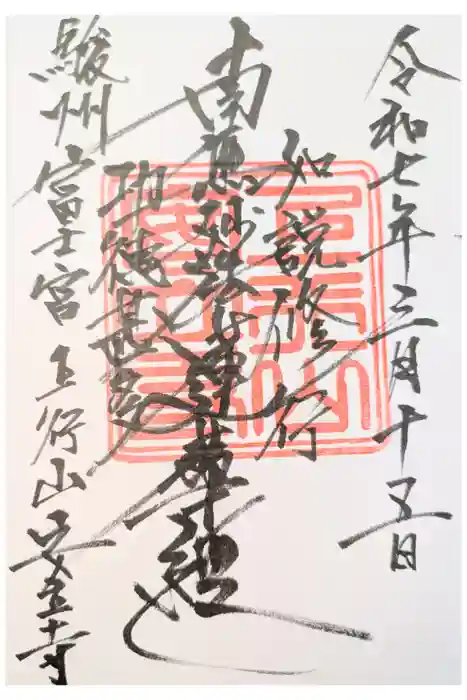 令和七年三月十五日
如説修行
南無妙法蓮華経
功徳甚多
駿州富士宮 行山 寺